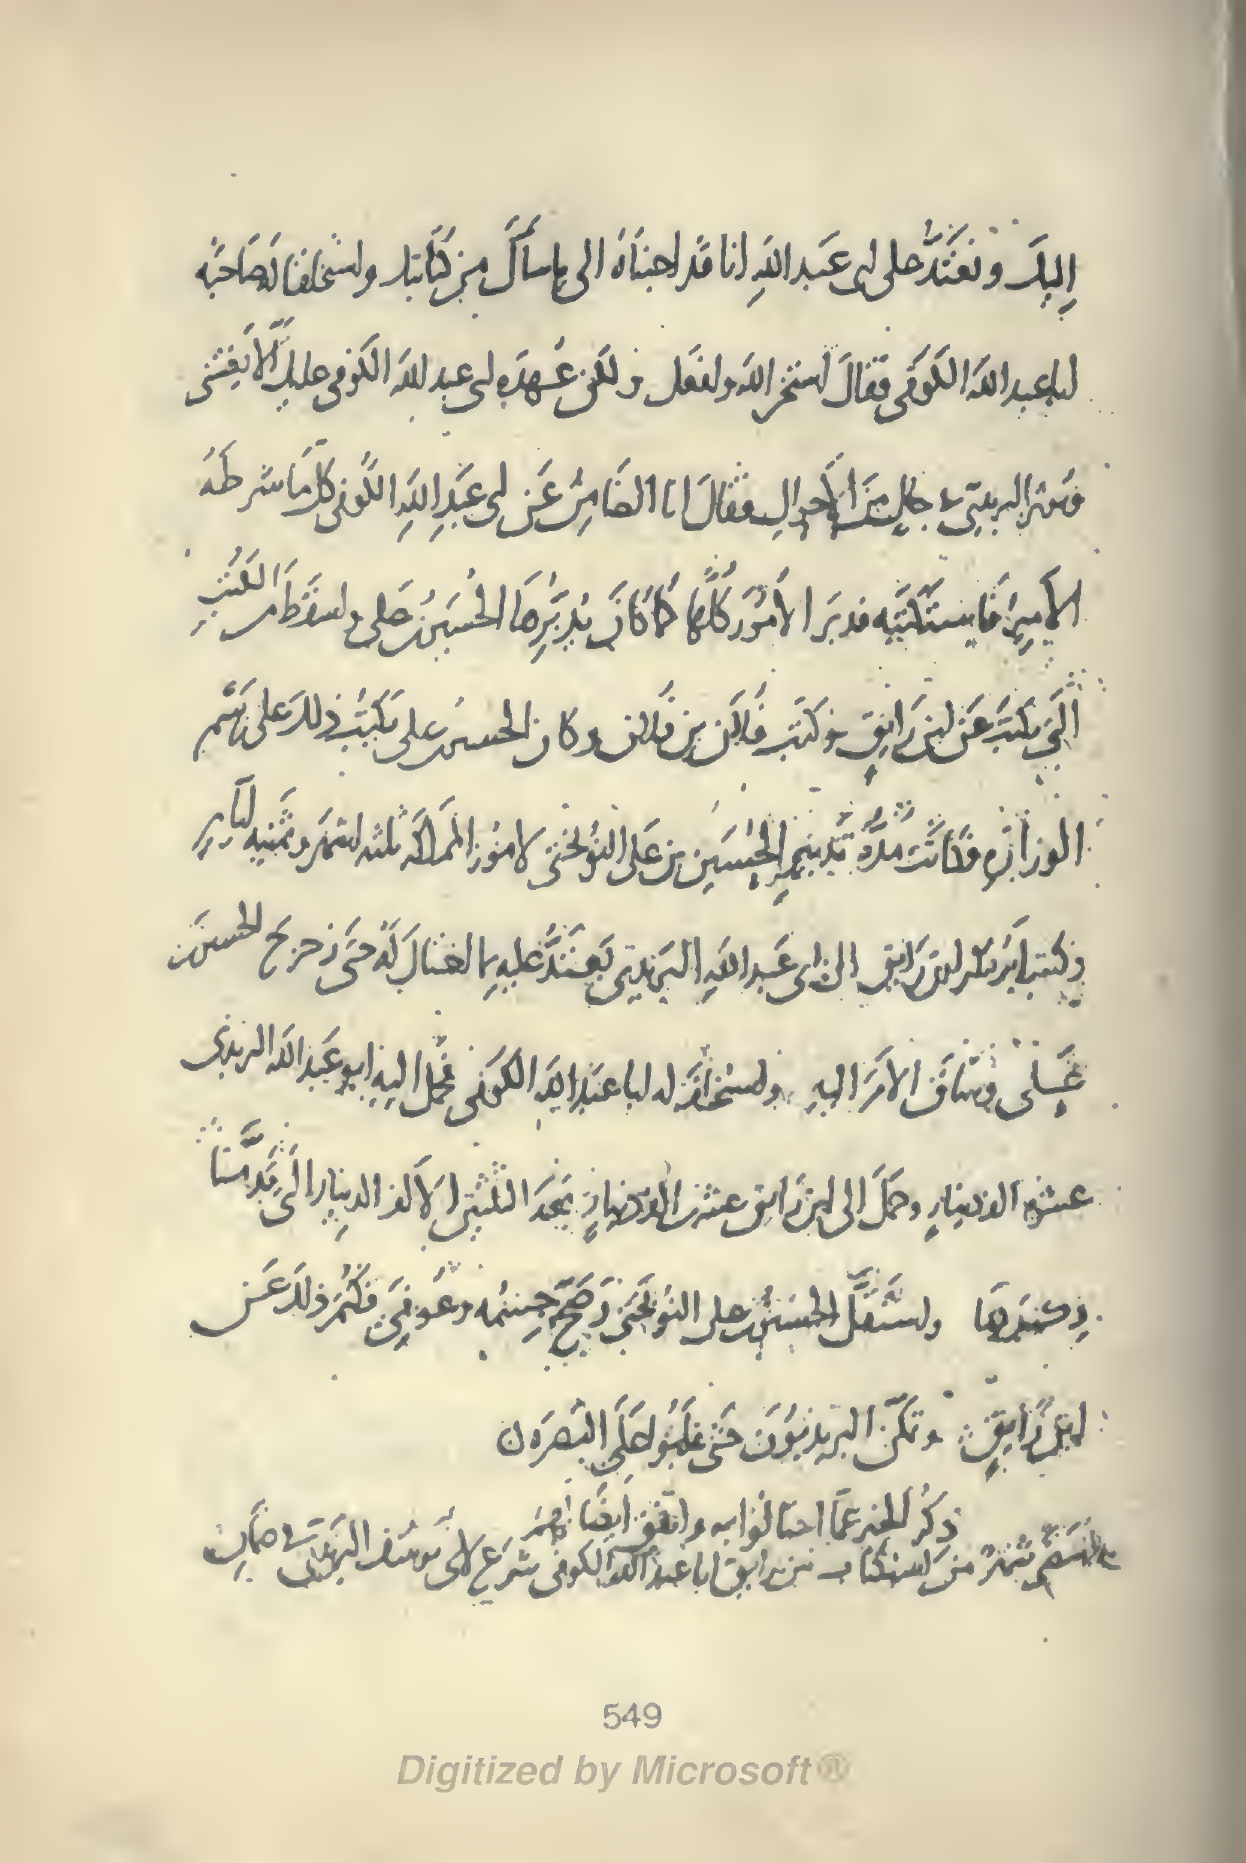 إليك ونعتد على ابى عبد الله انا قد اجبناه الى ما سأل من كتابتك واستخلفنا له صاحبه
ابا عبد الله الكوفى فقال استخر الله وافعل ولكن عهدة ابى عبد الله الكوفى عليك ألا يفشى
البريدى فى حال من الأحوال فقال انا الضامن عن ابى عبد الله الكوفى كل ما شرطه
الأمير فاستكتبه فدبر الأمور كلها كما كان يدبرها الحسين بن على واسقط من الكتب
التى تكتب عن ابن رائق وكتب فلان بن فلان وكان الحسين بن على يكتب ذلك على رسم
الوزارة فكانت مدة تدبير الحسين بن على النوبختى لامور المملكة ثلثة اشهر وثمنية ايام
وكتب ابو بكر ابن رائق الى ابى عبد الله البريدى يعتد عليه بما احتال له حتى زحزح الحسين بن
على وساق الأمر اليه واستخلف له ابا عبد الله الكوفى فحمل اليه ابو عبد الله البريدى
عشرة الف دينار وحمل الى ابن رائق عشرين الف دينار بعد الثلثين الألف الدينار التى قدمنا
ذكرها واستقل الحسين بن على النوبختى وصح جسمه وعوفى فكتم ذلك عن
ابن رائق وتمكن البريديون حتى غلبوا على البصره
ذكر الخبر عما احتالوا به واتفق ايضا لهم
شهر من استكتاب بن رائق ابا عبد الله الكوفى شرع لابى يوسف البريدى فى ضمان
549
Digitized by Microsoft®